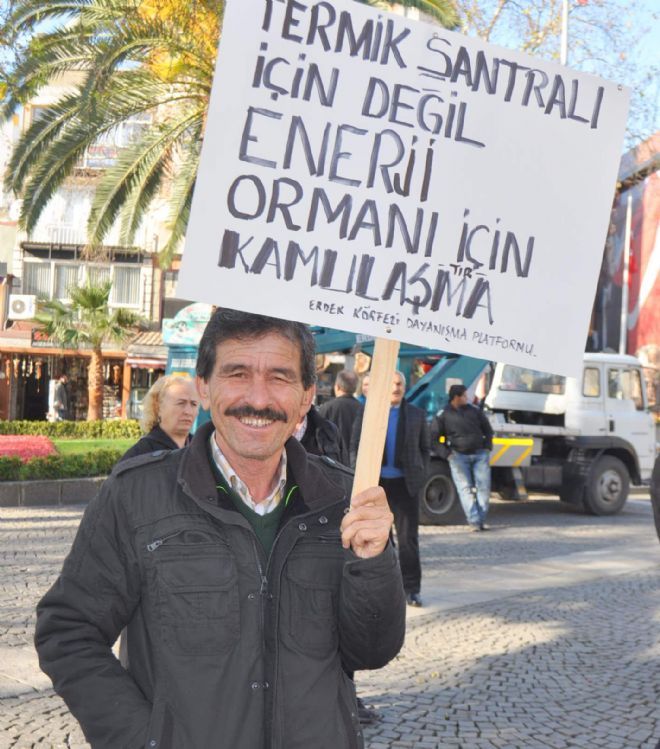 TERMİK ŞANTRALI
İÇİN DEĞİL
ENERJİ
ORMANI İÇİN
KAMULAŞTIRMA
ERDEK KÖRFEZİ DAYANIŞMA PLATFORMU